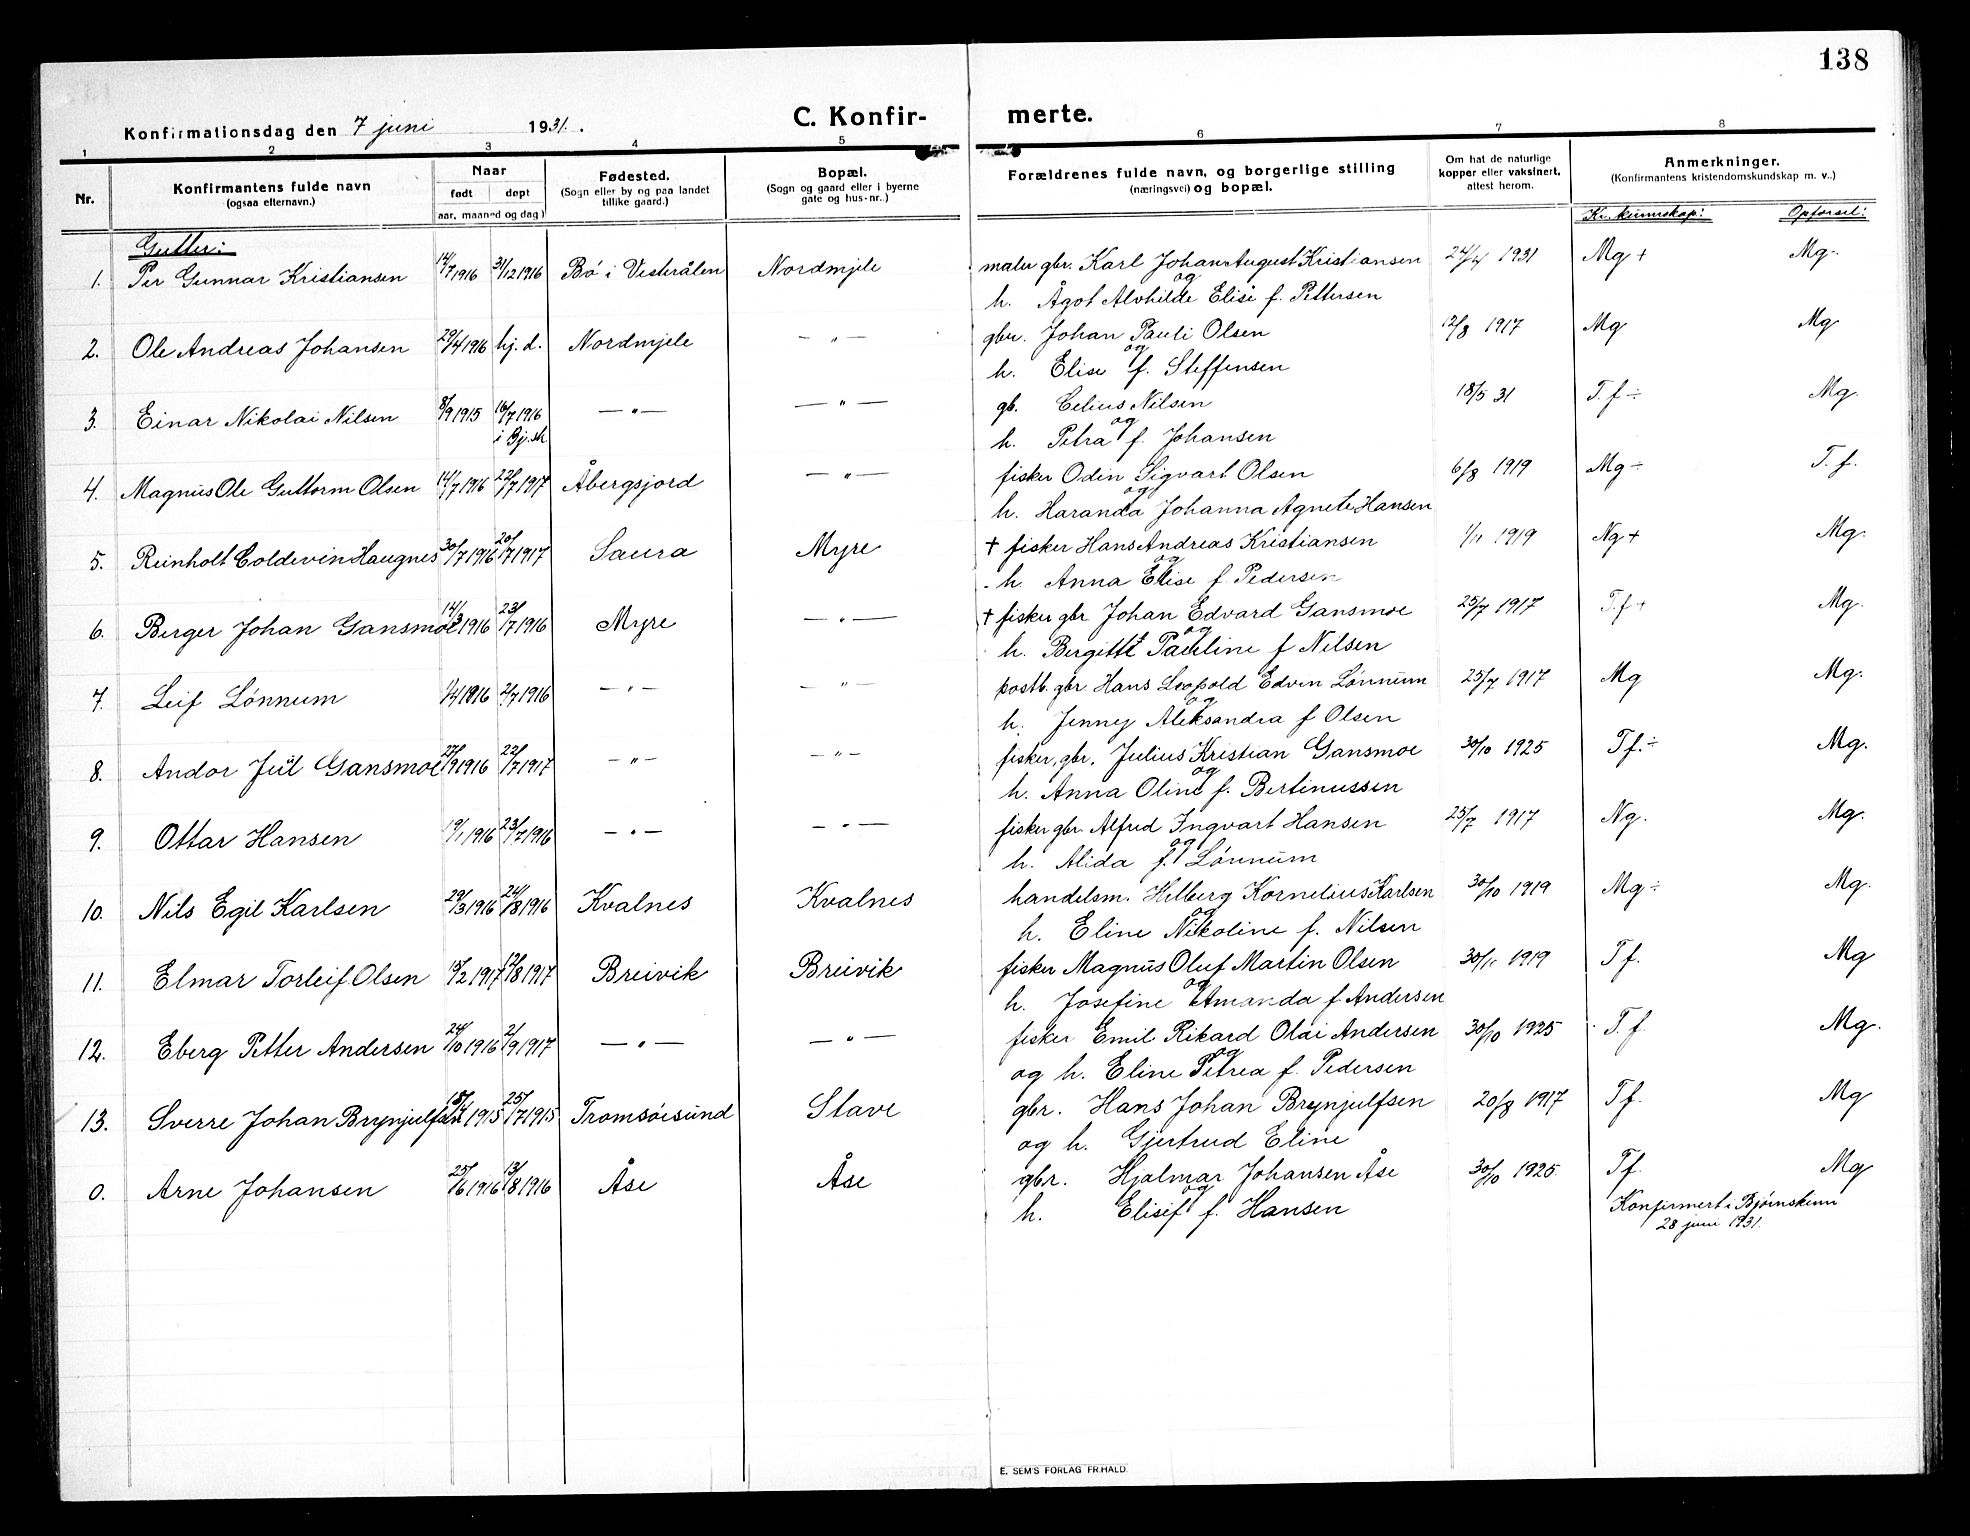 138
Konfirmationsdag den 7 juni 1931.
C. Konfir- merte.
1 2 3 4 5 6 7 8
Nr.
Konfirmantens fulde navn
(ogsaa efternavn.)
Naar
født døpt
aar, maaned og dag)
Fødested.
(Sogn eller by og paa landet
tillike gaard.)
Bopæl.
(Sogn og gaard eller i byerne
gate og hus-nr.)
Forældrenes fulde navn, og borgerlige stilling
(næringsvei) og bopæl.
Om hat de naturlige
kopper eller vaksinert,
attest herom.
Anmerkninger.
(Konfirmantens kristendomskundskap m. v..)
Kr. kunnskap: Opførsel:
Gutter:
1. Per Gunnar Kristiansen 14/7 1916 31/12 1916 Bø i Vesterålen Nordmjele maler gbr. Karl Johan August Kristiansen 24/4 1931 Mg + Mg.
og
h. Ågot Alvhilde Elise f. Pettersen
2. Ole Andreas Johansen 29/4 1916 hj. d. Nordmjele — " — gbr. Johan Pauli Olsen 12/8 1917 Mg Mg
og
h. Elise f. Steffensen
3. Einar Nikolai Nilsen 8/9 1915 16/7 1916 — " — — " — gb. Celius Nilsen 18/5 31 T. f ÷ Mg.
i Bj.sk. og
h. Petra f. Johansen
4. Magnus Ole Guttorm Olsen 14/7 1916 22/7 1917 Åbergsjord — " — fisker Odin Sigvart Olsen 6/8 1919 Mg ÷ T. f.
og
h. Haranda Johanna Agnete Hansen
5. Reinholt Coldevin Haugnes 30/7 1916 20/7 1917 Saura Myre + fisker Hans Andreas Kristiansen 1/11 1919 Ng + Mg.
og
h. Anna Elise f. Pedersen
6. Berger Johan Gansmoe 14/3 1916 23/7 1916 Myre — " — + fisker gbr Johan Edvard Gansmoe 25/7 1917 T.f + Mg.
og
h. Bergitte Pauline f Nilsen
7. Leif Lønnum 1/4 1916 2/7 1916 — " — — " — postb. gbr. Hans Leopold Edvin Lønnum 25/7 1917 Mg Mg.
og
h. Jenney Aleksandra f Olsen
8. Andor Jul Gansmoe 27/9 1916 22/7 1917 — " — — " — fisker, gbr. Julius Kristian Gansmoe 30/10 1925 Tf. ÷ Mg.
og
h. Anna Oline f. Bertinussen
9. Ottar Hansen 19/1 1916 23/7 1916 — " — — " — fisker gbr. Alfred Ingvart Hansen 25/7 1917 Ng. Mg.
og
h. Alida f. Lønnum
10. Nils Egil Karlsen 29/3 1916 24/8 1916 Kvalnes Kvalnes handelsm. Helberg Kornelius Karlsen 30/10 1919 Mg ÷ Mg.
og
h. Eline Nikoline f. Nilsen
11. Elmar Torleif Olsen 15/2 1917 12/8 1917 Breivik Breivik fisker Magnus Oluf Martin Olsen 30/11 1919 T f. Mg
og
h. Josefine Amanda f Andersen
12. Eberg Petter Andersen 24/10 1916 2/9 1917 — " — — " — fisker Emil Rikard Olai Andersen 30/10 1925 T. f. Mg.
og
og h. Eline Petrea f. Pedersen
13. Sverre Johan Brynjulfsen 18/4 1915 25/7 1915 Tromsøisund Stave gbr. Hans Johan Brynjulfsen 20/8 1917 T f. Mg
og h. Gjertrud Eline
0. Arne Johansen 25/6 1916 13/8 1916 Åse Åse gbr. Hjalmar Johansen Åse 30/10 1925 Tf. Mg
og
h. Elisef f. Hansen
Konfirmert i Bjørnskinn
28 juni 1931.
E. SEM'S FORLAG FR.HALD.